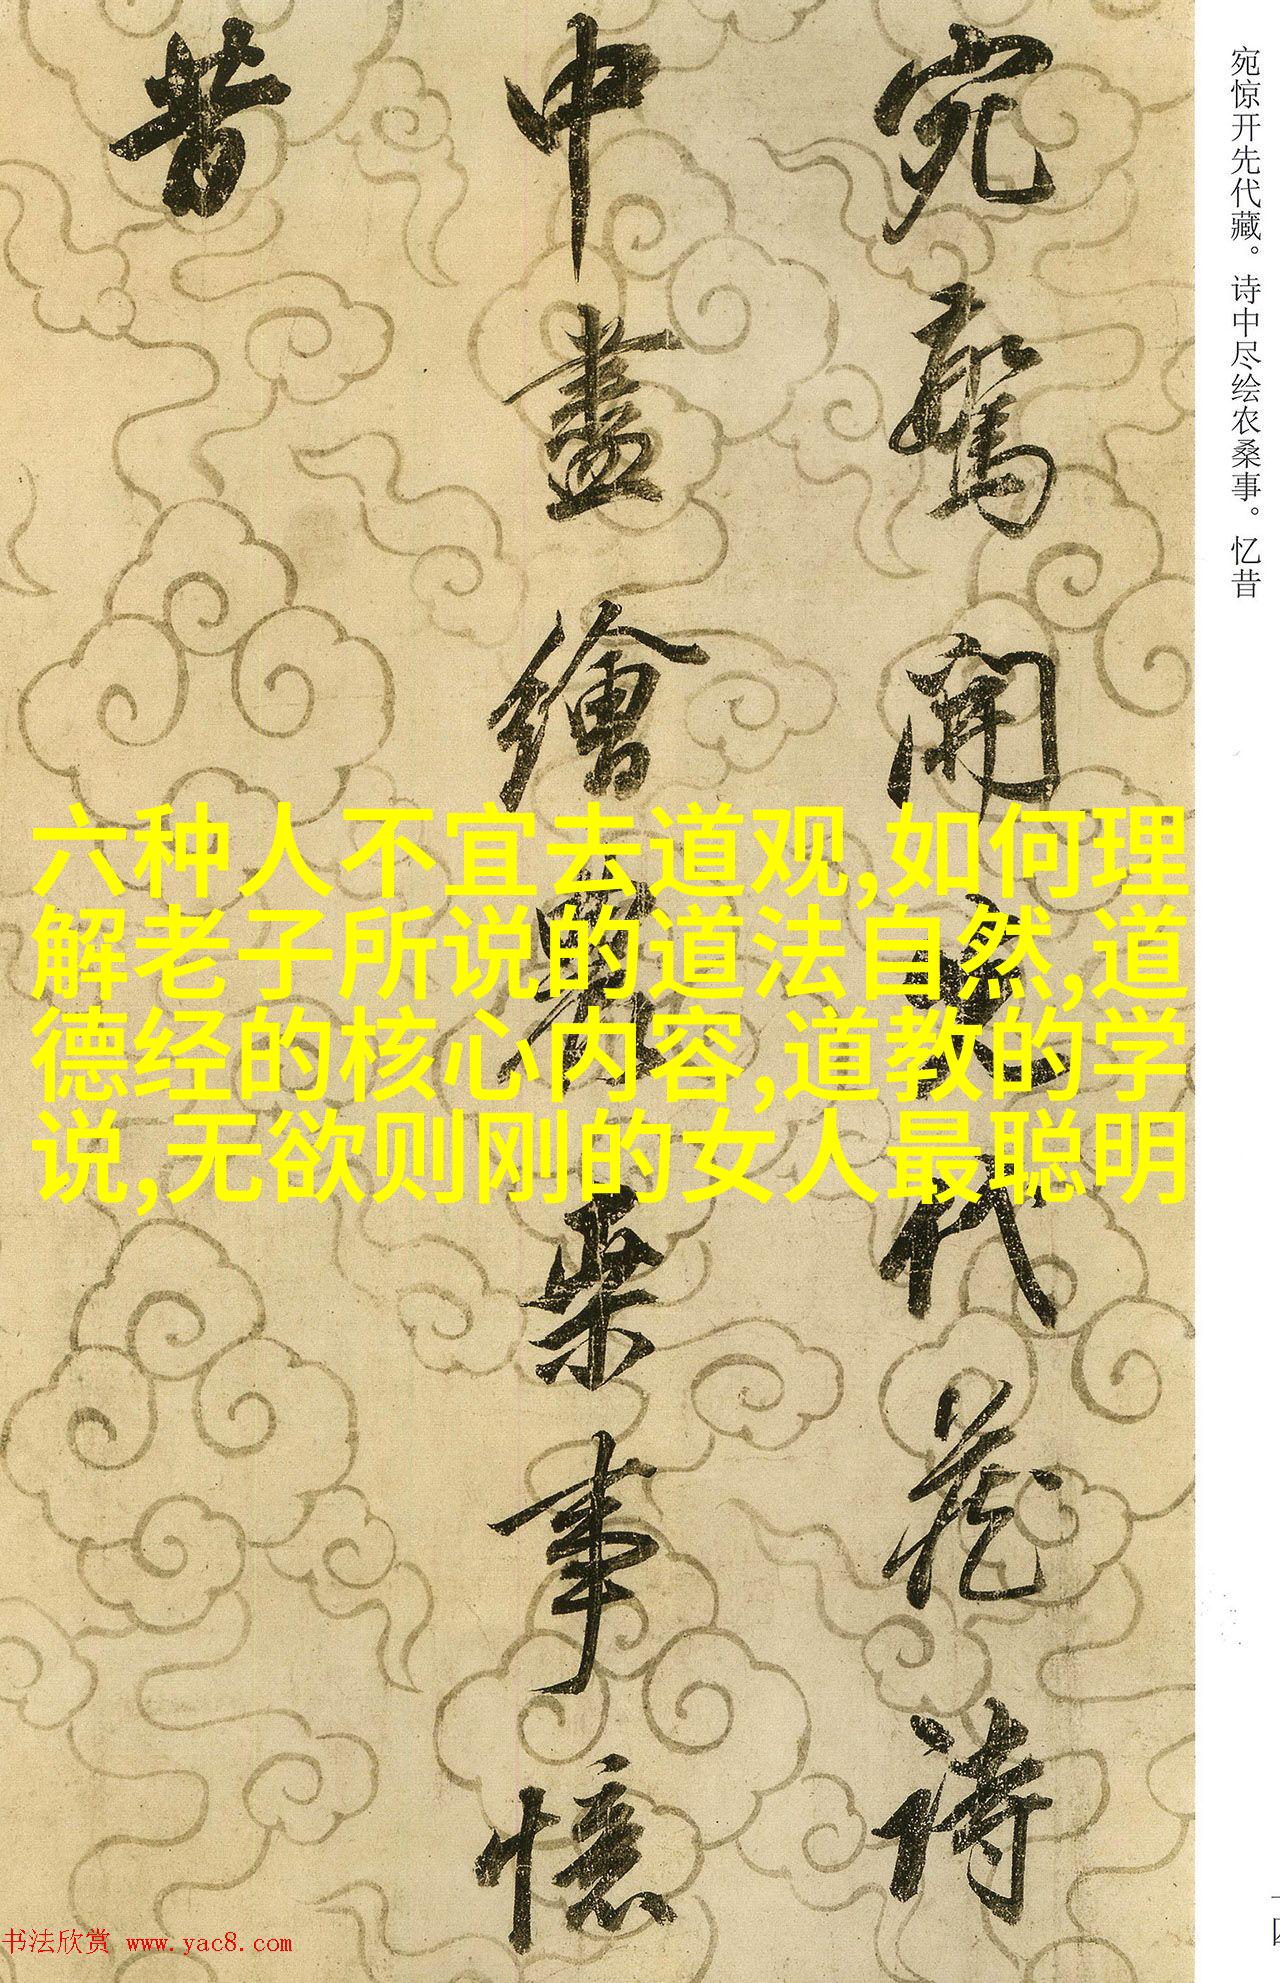 宛驚開先代藏詩
中盡繪農桒事憶
昔
宛惊开先代藏。诗中尽绘农桑事。忆昔
六种人不宜去道观,如何理
解老子所说的道法自然,道
德经的核心内容,道教的学
说,无欲则刚的女人最聪明
书法欣赏 www.yac8.com